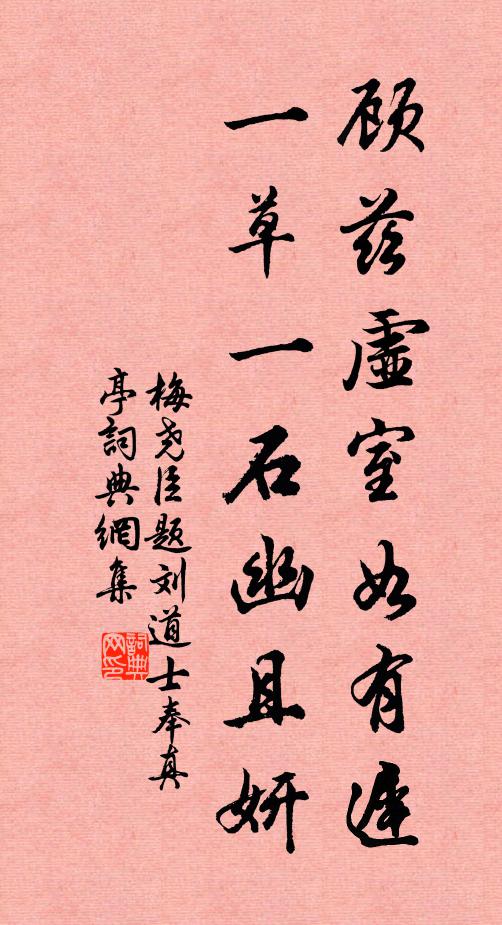 顾兹虛室如有遲
一草一石幽且妍
梅尧臣题刘道士奉真
亭詞典網集
詞典
网印